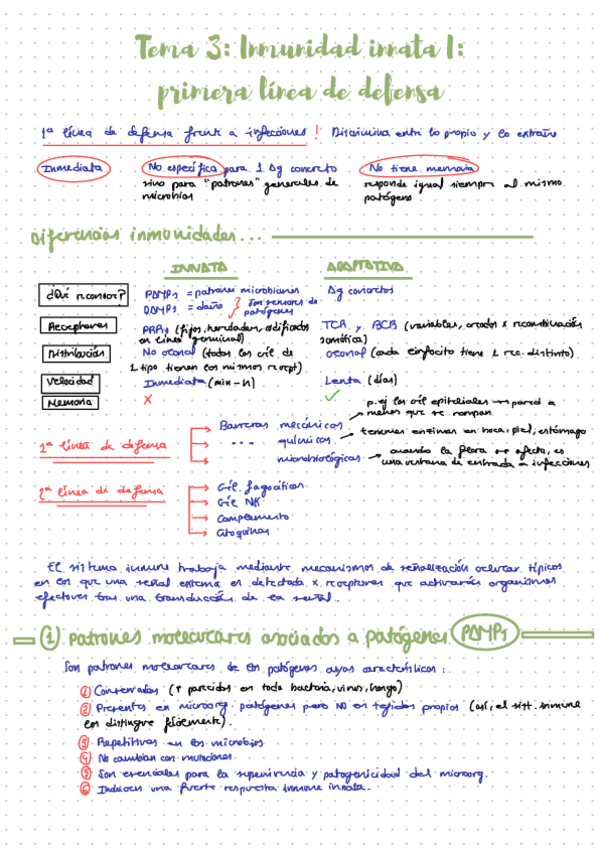 Tema 3: Inmunidad innata I:
primera línea de defensa
1ª línea de defensa frente a infecciones! Discrimina entre lo propio y lo extraño
Inmediata
No específica para 1 Ag concreto
sino para "patrones" generales de
microbios
No tiene memoria
responde igual siempre al mismo
patógeno
Diferencias inmunidades...
INNATA ADAPTATIVA
¿Qué reconoce? PAMPs = patrones microbianos Ag concretos
DAMPs = daño } Son sensores de
patógenos
Receptores PRRs (fijos, heredados, codificados TCR y BCR (variables, creados x recombinación
en línea germinal) somática)
Distribución No clonal (todas las cél. de clonal (cada linfocito tiene 1 rec. distinto)
1 tipo tienen los mismos recept)
Velocidad Inmediata (min-h) Lenta (días)
Memoria X ✓
1ª línea de defensa
Barreras mecánicas p.ej las cél epiteliales → pared a
menos que se rompan.
... químicas → tenemos enzimas en boca, piel, estómago
... microbiológicas → cuando la flora se afecta, es
una ventana de entrada a infecciones
2ª línea di defensa
Cél. fagocíticas
Cél NK
Complemento
Citoquinas
El sistema inmune trabaja mediante mecanismos de señalización celular típicos
en los que una señal externa es detectada x receptores que activarán organismos
efectores tras una transducción de la señal.
① Patrones moleculares asociados a patógenos PAMPs
Son patrones moleculares de los patógenos cuyas características:
① Conservados (+ parecidos en toda bacteria, virus, hongo)
② Presentes en microorg. patógenos pero NO en tejidos propios (así, el sist. inmune
los distingue fácilmente).
③ Repetitivos en los microbios
④ No cambian con mutaciones.
⑤ Son esenciales para la supervivencia y patogenicidad del microorg.
⑥ Inducen una fuerte respuesta inmune innata.